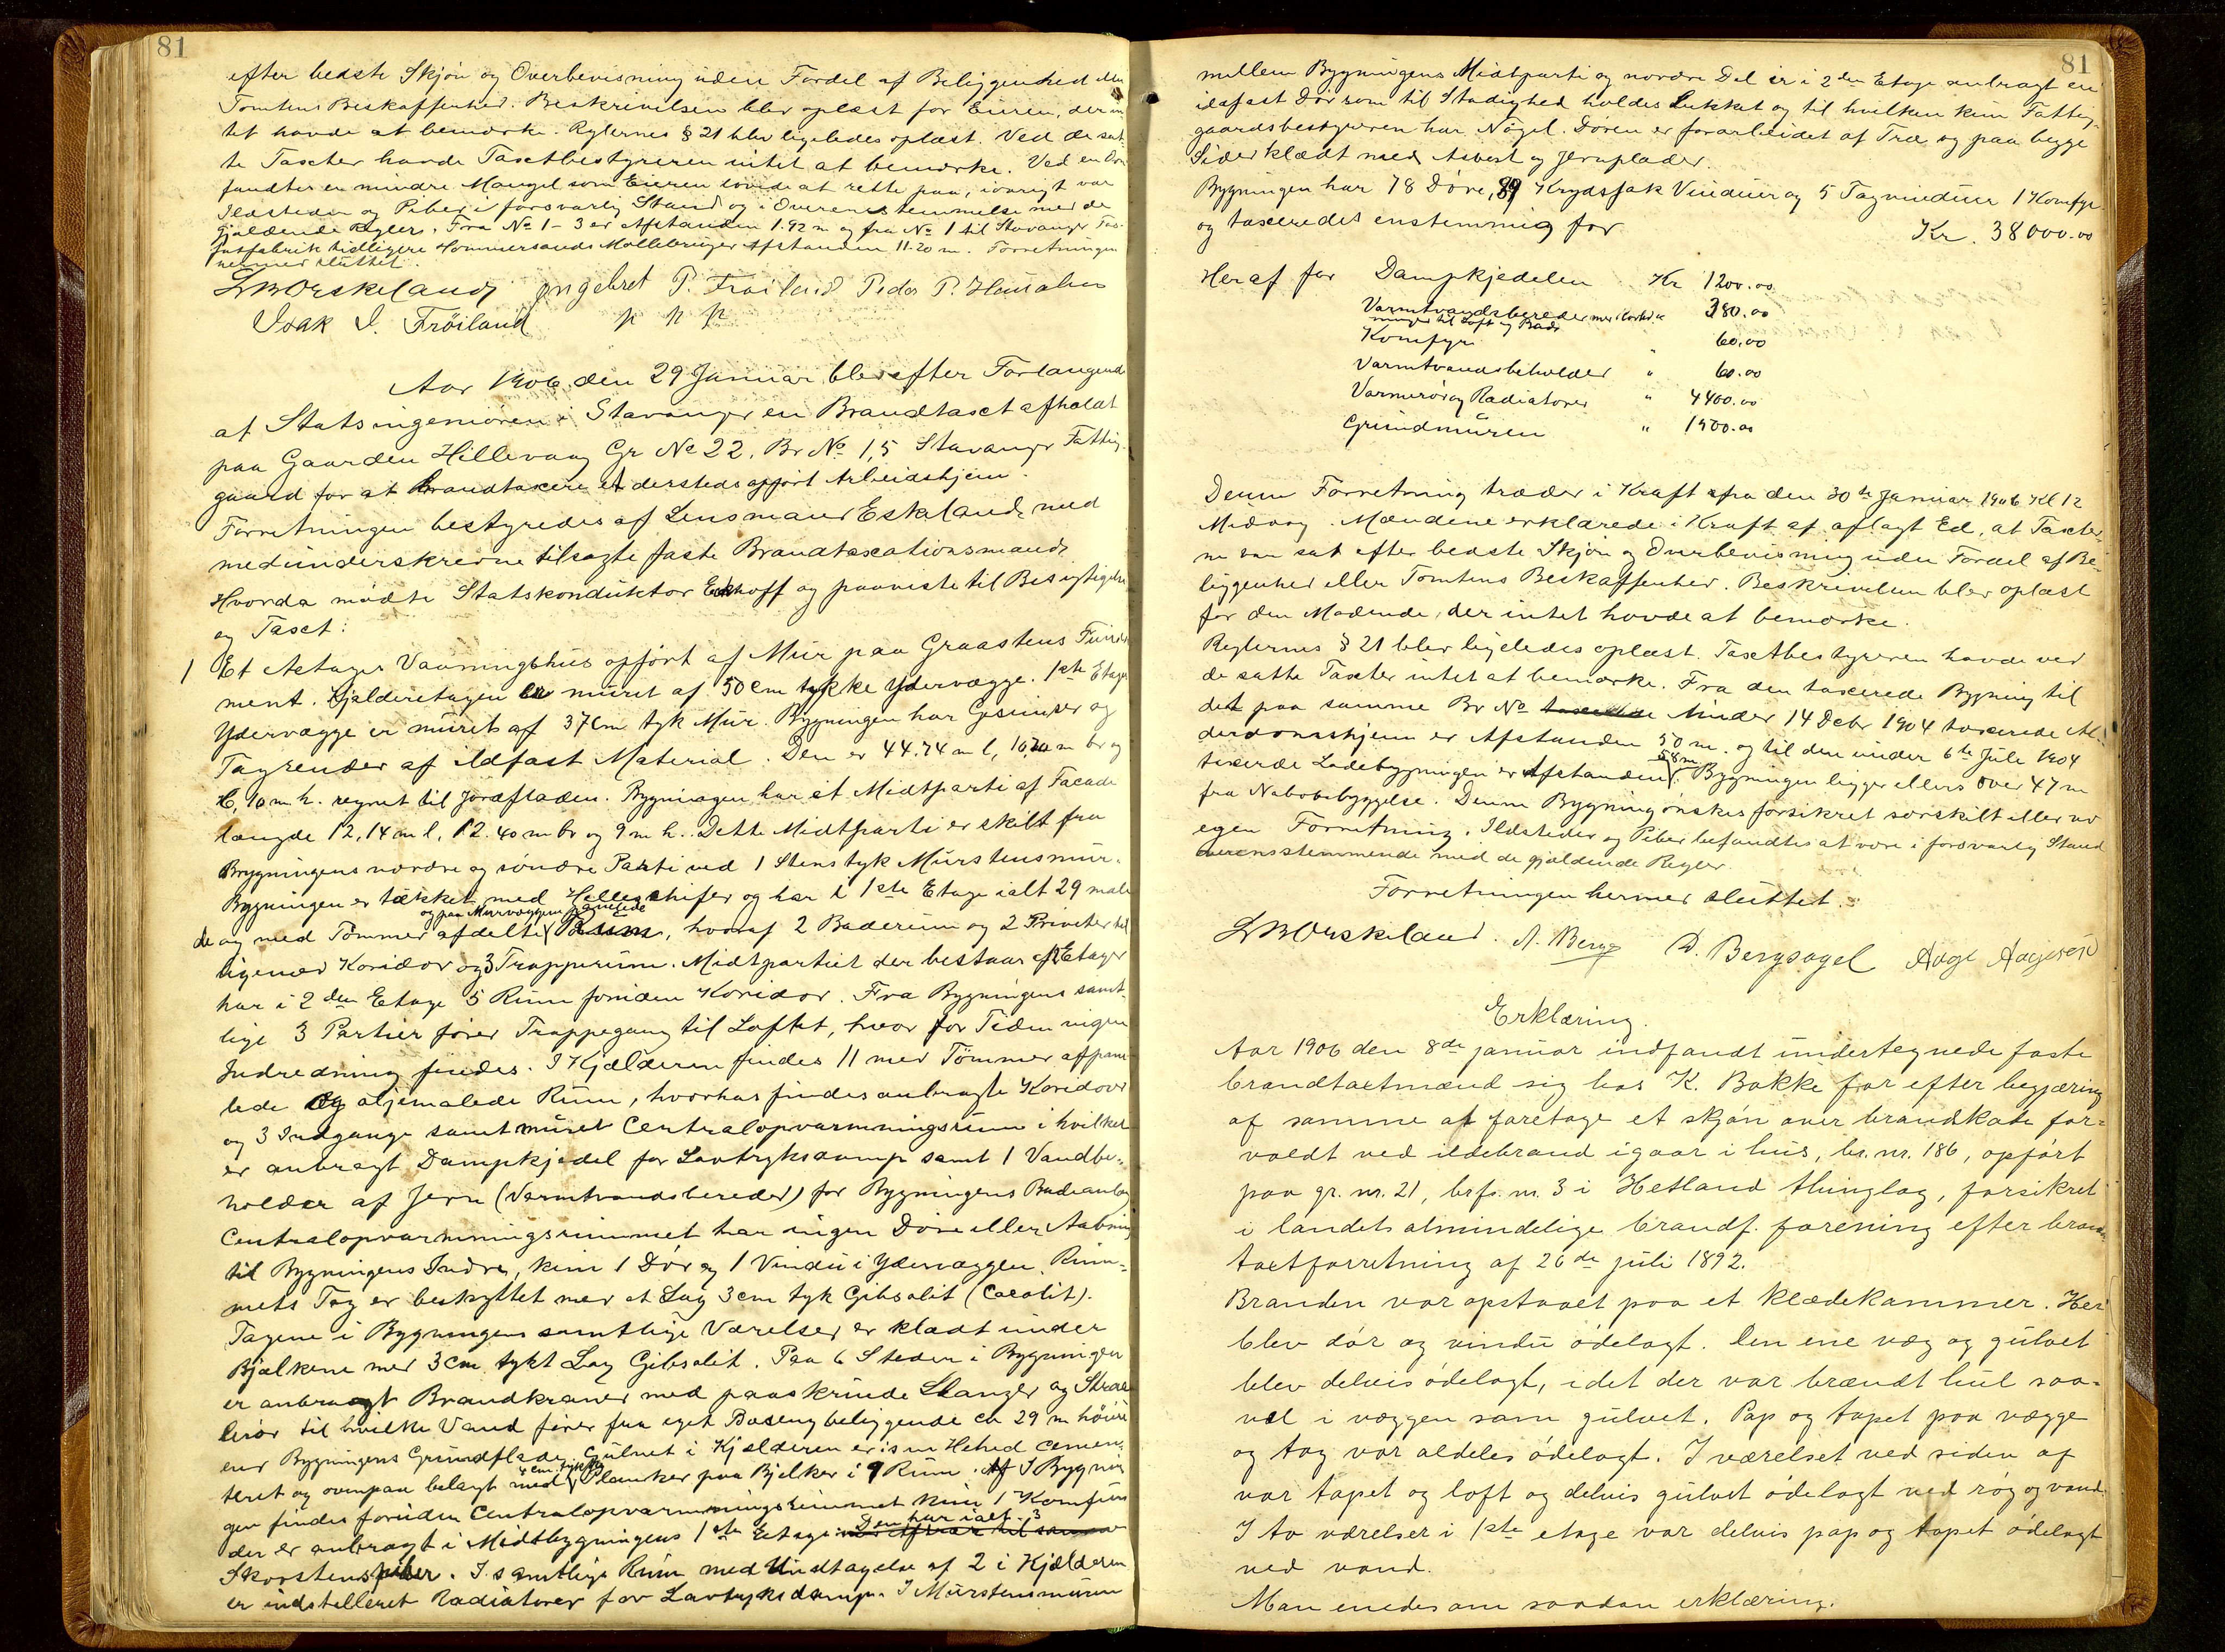 81
efter bedste Skjøn og Overbevisning uden Fordel af Beliggenhed eller
Tomtens Beskaffenhed. Beskrivelsen blev oplæst for Eieren, der in
tet havde at bemærke. Reglernes § 21 blev ligeledes oplæst. Ved de sat
te Taxter havde Taxtbestyreren intet at bemærke. Ved en
fandtes en mindre Mangel som Eieren lovede at rette paa, iøvrigt var
Ildsteder og Piber i forsvarlig Stand og i Overensstemmelse med de
gjældende Regler. Fra No 1-3 er Afstanden 1.92 m og fra No 1 til Stavanger
fabrik tidligere Hommersands Møllebruger Afstanden 11.20 m. Forretningen
hermed sluttet.
Ingebret P. Frøiland Peder P.
Isak I. Frøiland p p p
Aar 1906 den 29 Januar blev efter Forlangende
af Statsingeniøren i Stavanger en Brandtaxt afholdt
paa Gaarden Hillevaag Gr No 22. Br No 1,5 Stavanger Fattig-
gaard for at brandtaxere et dersteds opført Arbeidshjem.
Forretningen bestyredes af Lensmand Eskeland med
medunderskrevne tilsagte faste Brandtaxationsmænd.
Hvorda mødte Statskonduktør Eckhoff og paaviste til Besigtigelse
og Taxt:
1 Et Aetages Vaaningshus opført af Mur paa Graastens Funda
ment. Kjælderetagen er muret af 50 cm tykke Ydervægge. 1ste Etages
Ydervægge er muret af 37 cm tyk Mur. Bygningen har Gesimser og
Tagrender af ildfast Material. Den er 44.74 m l, 10,20 m br og
6,10 m h. regnet til Jordfladen. Bygningen har et Midtparti af Facade
længde 12,14 m l, 12.40 m br og 9 m h. Dette Midtparti er skilt fra
Bygningens nordre og søndre Parti ved 1 Stens tyk Murstensmur.
Bygningen er tækket med Helleskifer og har i 1ste Etage ialt 29 male
og paa Murvæggene panelede
de og med Tømmer afdelte Rum, hvoraf 2 Baderum og 2 Priveter til
ligemed Koridor og 3 Trapperum. Midtpartiet der bestaar af 2 Etager
har i 2den Etage 5 Rum foruden Koridor. Fra Bygningens samt-
lige 3 Partier fører Trappegang til Loftet, hvor for Tiden ingen
Indredning findes. I Kjælderen findes 11 med Tømmer afpane
lede og oljemalede Rum, hvorhos findes anbragte Koridorer
og 3 Indgange samt muret Centralopvarmningsrum i hvilket
er anbragt Dampkjedel for Lavtryksdamp samt 1 Vandbe-
holder af Jern (Varmtvandsbereder) for Bygningens Badeanlæg
Centralopvarmningsrummet har ingen Døre eller Aabning
til Bygningens Indre, kun 1 Dør og 1 Vindu i Ydervæggen. Rum-
mets Tag er beskyttet med et Lag 3 cm tyk Gibsolit (Cocolit).
Tagene i Bygningens samtlige Værelser er klædt under
Bjælkene med 3 cm tykt Lag Gibsolit. Paa 6 Steder i Bygningen
er anbragt Brandkraner med paaskruede Slanger og Straale
rør til hvilke Vand fører fra eget Baseng beliggende ca 29 m høiere
end Bygningens Grundflade. Gulvet i Kjælderen er i sin Helhed cemen-
4 cm. tykke
teret og ovenpaa belagt med Planker paa Bjelker i 9 Rum. I Bygnin
gen findes foruden Centralopvarmningsrummet kun 1 Komfur
Den har ialt 3
der er anbragt i Midtbygningens 1ste Etage.
Skorstenspiber. I samtlige Rum med Undtagelse af 2 i Kjælderen
er indstalleret Radiatorer for Lavtryksdamp. I Murstensmuren
81
mellem Bygningens Midtparti og nordre Del er i 2den Etage anbragt en
ildfast Dør som til Stadighed holdes Lukket og til hvilken kun Fattig-
gaardsbestyreren har Nøgel. Døren er forarbeidet af Træ og paa begge
Sider klædt med Asbest og Jernplader.
Bygningen har 78 Døre, 89 Krydsfak Vinduer og 5 Tagvinduer 1 Komfyr
og taxeredes enstemmig for Kr. 38000.00
Heraf for Dampkjedelen Kr 1200.00
Varmtvandsbereder med " 380.00
ninger til Loft og Bade
Komfyr " 60.00
Varmtvandsbeholder " 60.00
Varmerør og Radiatorer " 4400.00
Grundmuren " 1500.00
Denne Forretning træder i Kraft fra den 30te Januar 1906 Kl 12
Middag. Mændene erklærede i Kraft af aflagt Ed, at Taxter
ne var sat efter bedste Skjøn og Overbevisning uden Fordel af Be-
liggenhed eller Tomtens Beskaffenhed. Beskrivelsen blev oplæst
for den Mødende, der intet havde at bemærke.
Reglernes § 21 blev ligeledes oplæst. Taxtbestyreren havde ved
de satte Taxter intet at bemærke. Fra den taxerede Bygning til
det paa samme Br No under 14 Debr 1904 taxerede Al-
derdomshjem er Afstanden 50 m. og til den under 6te Juli 1904
58 m
taxerede Ladebygningen er Afstanden. Bygningen ligger ellers over 47 m
fra Nabobebyggelse. Denne Bygning ønskes forsikret særskilt eller ved
egen Forretning. Ildsteder og Piber befandtes at være i forsvarlig Stand
overensstemmende med de gjældende Regler.
Forretningen hermed sluttet.
A. Berge D. Bergsagel Aage Aagesen
Erklæring.
Aar 1906 den 8de januar indfandt undertegnede faste
brandtaxtmænd sig hos K. Bakke for efter begjæring
af samme at foretage et skjøn over brandskade for-
voldt ved ildebrand igaar i hus, br. nr. 186, opført
paa gr. nr. 21, brfs. nr. 3 i Hetland thinglag, forsikret
i landets almindelige brandf. forening efter brand
taxtforretning af 26de juli 1892.
Branden var opstaaet paa et klædekammer. Her
blev dør og vindu ødelagt. Den ene væg og gulvet
blev delvis ødelagt, idet der var brændt hul saa-
vel i væggen som gulvet. Pap og tapet paa vægge
og tag var aldeles ødelagt. I værelset ved siden af
var tapet og loft og delvis gulvet ødelagt ved røg og vand.
I to værelser i 1ste etage var delvis pap og tapet ødelagt
ved vand.
Man enedes om saadan erklæring.